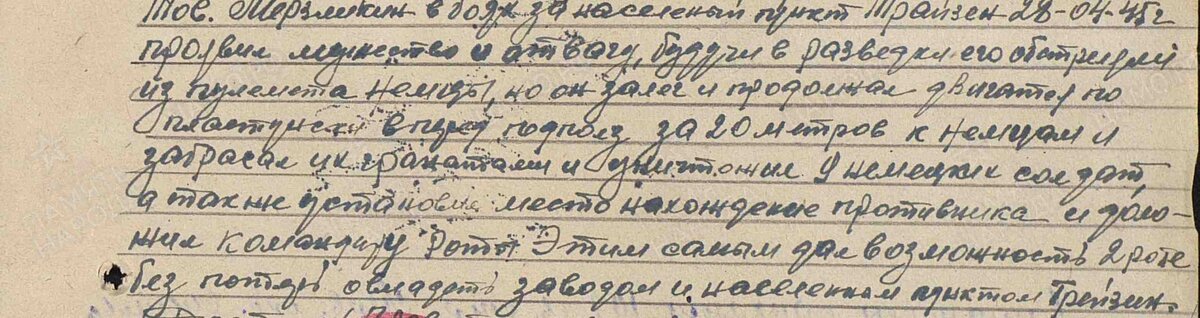 Тов. Мерзликин в боях за населеный пункт Трайзен 28-04-45г
проявил мужество и отвагу, будучи в разведки его обстреляли
из пулемета немцы, но он залег и продолжал двигатся по
пластунски вперед подполз за 20 метров к немцам и
забрасал их гранатами и уничтожил 9 немецких солдат,
а также установил место нахождение противника и доло-
жил командиру роты Этим самым дал возможность 2 роте
без потерь овладеть заводом и населенным пунктом Трейзин.
ПАМЯТЬ
НАРОДА